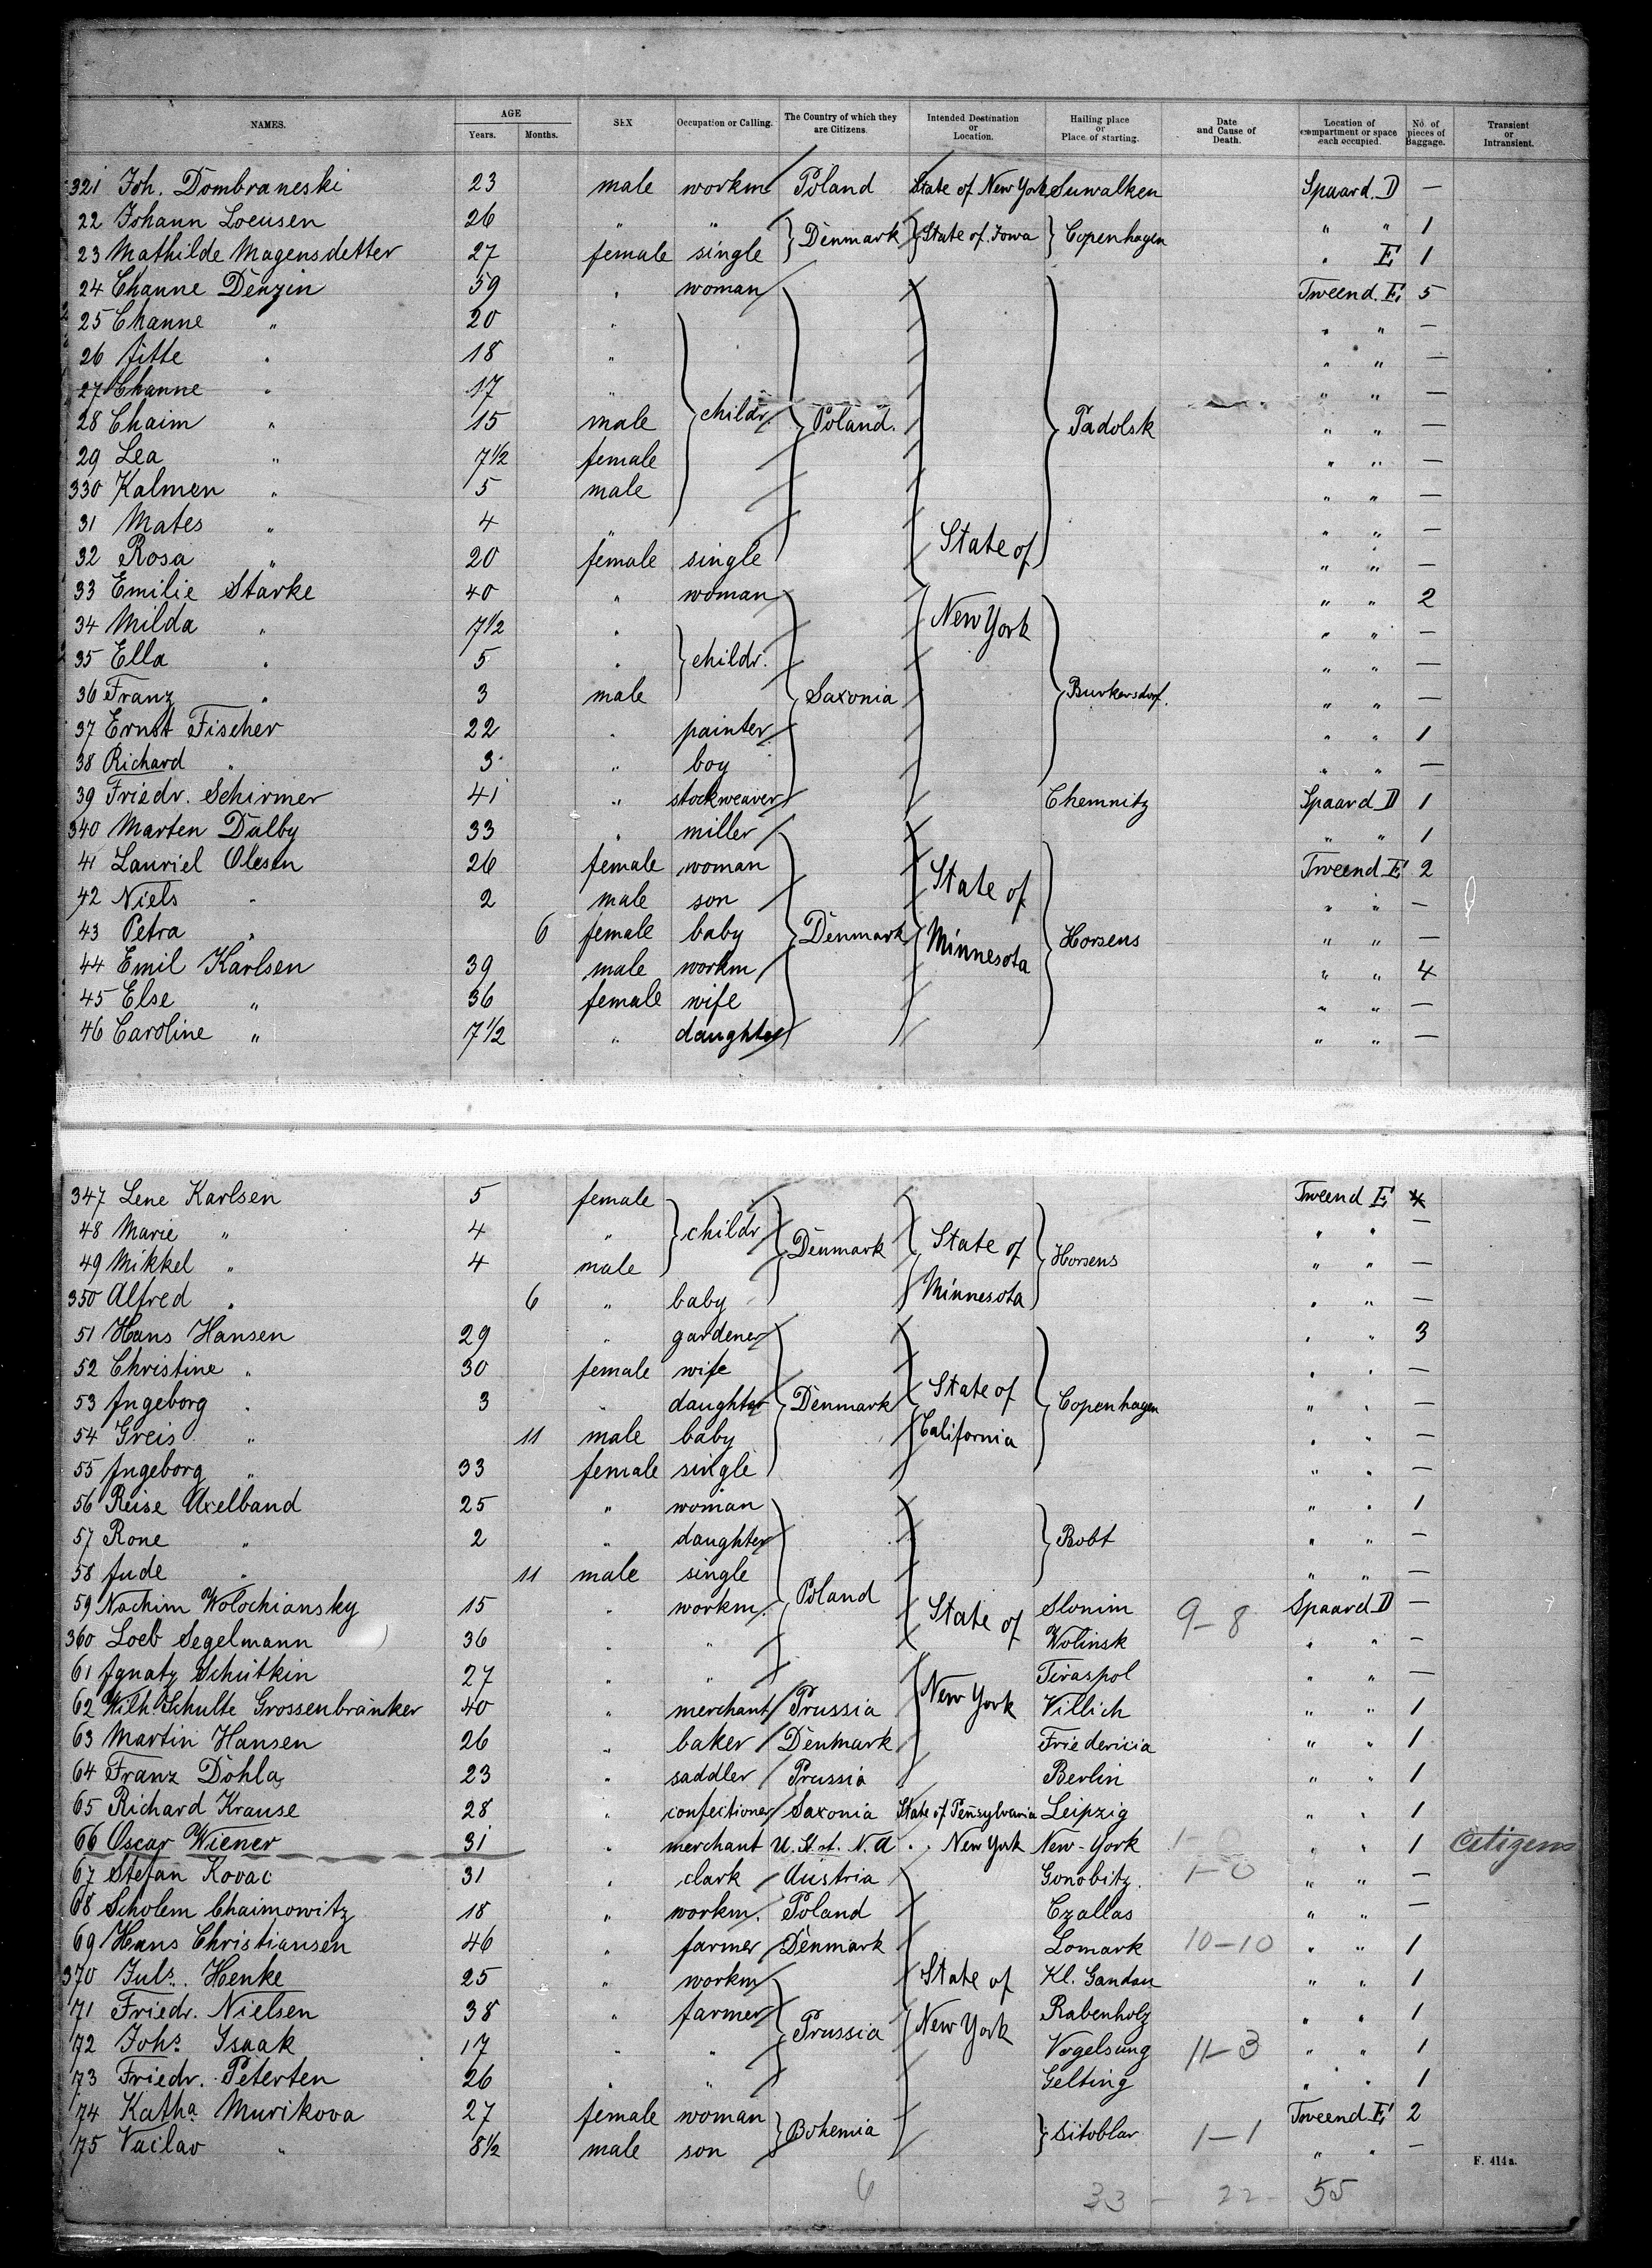 NAMES. AGE Years. Months. SEX Occupation or Calling. The Country of which they are Citizens. Intended Destination or Location. Hailing place or Place of starting. Date and Cause of Death. Location of compartment or space each occupied. No. of pieces of Baggage. Transient or Intransient.
321 Joh. Dombraneski 23 male workm Poland State of New York Suwalken Spaard. D —
22 Johann Loeusen 26 " " } Denmark } State of Iowa } Copenhagen " " 1
23 Mathilde Magensdetter 27 female single " E 1
24 Channe Denzin 59 " woman Tweend. E 5
25 Channe " 20 " " " —
26 Jitte " 18 " " " —
27 Channe " 17 " " " —
28 Chaim " 15 male } childr. } Poland. } Padolsk " " —
29 Lea " 7 1/2 female " " —
330 Kalmen " 5 male " " —
31 Mates " 4 " " " —
32 Rosa " 20 female single State of " " —
33 Emilie Starke 40 " woman " " 2
34 Milda " 7 1/2 " New York " " —
35 Ella " 5 " } childr. " " —
36 Franz " 3 male } Saxonia } Burkersdorf. " " —
37 Ernst Fischer 22 " painter " " 1
38 Richard " 3 " boy " " —
39 Friedr. Schirmer 41 " stockweaver Chemnitz Spaard D 1
340 Marten Dalby 33 " miller " " 1
41 Lauriel Olesen 26 female woman State of Tweend E 2
42 Niels " 2 male son " " —
43 Petra " 6 female baby } Denmark } Minnesota } Horsens " " —
44 Emil Karlsen 39 male workm " " 4
45 Else " 36 female wife " " —
46 Caroline " 7 1/2 " daughter " " —
347 Lene Karlsen 5 female Tweend E 4
48 Marie " 4 " } childr } Denmark } State of " " —
49 Mikkel " 4 male } Horsens " " —
350 Alfred " 6 " baby Minnesota " " —
51 Hans Hansen 29 " gardener " " 3
52 Christine " 30 female wife " " —
53 Ingeborg " 3 " daughter } Denmark } State of } Copenhagen " " —
54 Greis " 11 male baby California " " —
55 Ingeborg " 33 female single " " —
56 Reise Axelband 25 " woman " " 1
57 Rone " 2 " daughter } Bobt " " —
58 Jude " 11 male single " " —
59 Nachim Wolochiansky 15 " workm. } Poland State of Slonim 9-8 Spaard D —
360 Loeb Segelmann 36 " " Wolinsk " " —
61 Ignatz Schutkin 27 " " Tiraspol " " —
62 Wilh. Schulte Grossenbränker 40 " merchant Prussia New York Villich " " 1
63 Martin Hansen 26 " baker Denmark Friedericia " " 1
64 Franz Döhla 23 " saddler Prussia Berlin " " 1
65 Richard Krause 28 " confectioner Saxonia State of Pensylvania Leipzig " " 1
66 Oscar Wiener 31 " merchant U. St. N. A " " New York New-York 1-0 " " 1 Citizens
67 Stefan Kovac 31 " clark Austria Gonobitz. 1-0 " " —
68 Scholem Chaimowitz 18 " workm. Poland Czallas " " —
69 Hans Christiansen 46 " farmer Denmark Lomark 10-10 " " 1
370 Juls. Henke 25 " workm State of Kl. Gandau " " 1
71 Friedr. Nielsen 38 " farmer } Prussia New York Rabenholz " " 1
72 Johs. Isaak 17 " " Vogelsang 11-3 " " 1
73 Friedr. Peterten 26 " " Gelting " " 1
74 Katha Murikova 27 female woman } Bohemia Tweend E 2
75 Vaclav " 8 1/2 male son } Sitoblar 1-1 " " —
F. 414a.
6 33 - 22 - 55